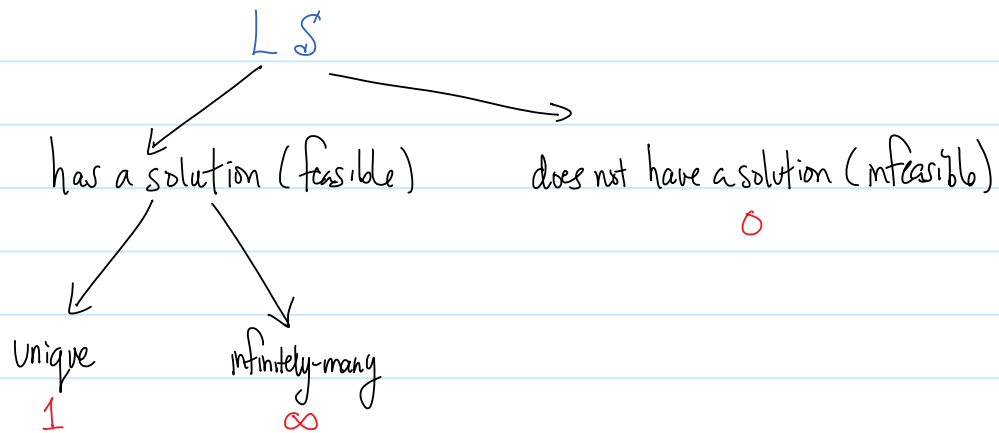 LS
has a solution (feasible)
does not have a solution (infeasible)
0
unique
infinitely-many
1
∞